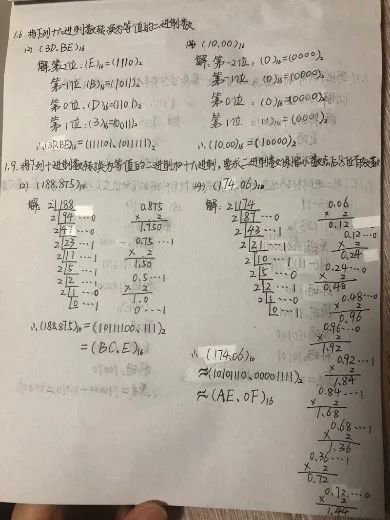 1.6. 将下列十六进制数转换为等值的二进制数
(2) (3D.BE)₁₆
解: 第-2位: (E)₁₆=(1110)₂
第-1位: (B)₁₆=(1011)₂
第0位: (D)₁₆=(1101)₂
第1位: (3)₁₆=(0011)₂
∴(3D.BE)₁₆=(111101.1011111)₂
(4) (10.00)₁₆
解: 第-2位: (0)₁₆=(0000)₂
第-1位: (0)₁₆=(0000)₂
第0位: (0)₁₆=(0000)₂
第1位: (1)₁₆=(0001)₂
∴(10.00)₁₆=(10000)₂
1.9. 将下列十进制数转换为等值的二进制和十六进制, 要求二进制数保留小数点后8位有效数
(2) (188.875)₁₀
解:
2 188
2 94 ⋯0
2 47 ⋯0
2 23 ⋯1
2 11 ⋯1
2 5 ⋯1
2 2 ⋯1
2 1 ⋯0
0 ⋯1
0.875
× 2
1.750
0.75⋯1
× 2
1.50
0.5⋯1
× 2
1.0
0⋯1
∴(188.875)₁₀=(10111100.111)₂
=(BC.E)₁₆
(4) (174.06)₁₀
解:
2 174
2 87 ⋯0
2 43 ⋯1
2 21 ⋯1
2 10 ⋯1
2 5 ⋯0
2 2 ⋯1
2 1 ⋯0
0 ⋯1
0.06
× 2
0.12
0.12⋯0
× 2
0.24
0.24⋯0
× 2
0.48
0.48⋯0
× 2
0.96
0.96⋯0
× 2
1.92
0.92⋯1
× 2
1.84
0.84⋯1
× 2
1.68
0.68⋯1
× 2
1.36
0.36⋯1
× 2
0.72
0.72⋯0
× 2
1.44
∴ (174.06)₁₀
≈(10101110.00001111)₂
≈(AE.0F)₁₆